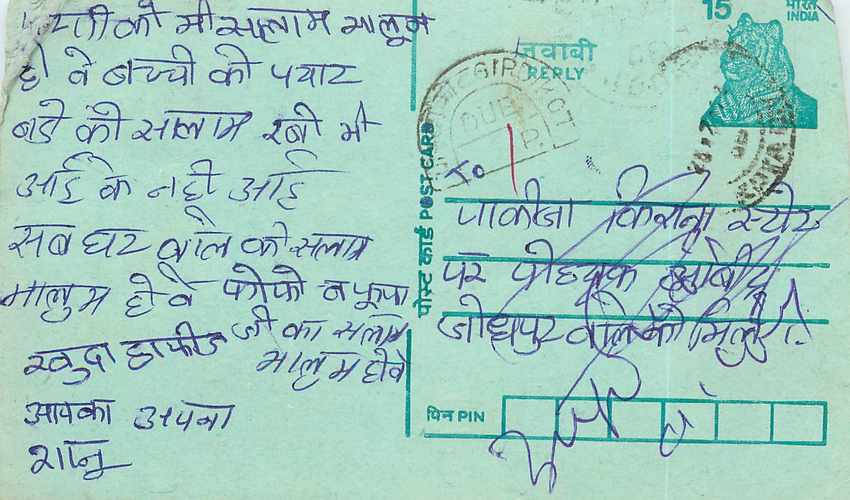 को भी सलाम मालूम
हो वे बच्ची को प्यार
बडे को सलाम रबी भी
आई के नही आई
सब घर वाले को सलाम
मालुम होवे फोफो व फुफा
जी का सलाम
खुदा हाफीज मालुम होवे
आपका अपना
शानू
15
भारत
INDIA
जवाबी
REPLY
पोस्ट कार्ड POST CARD
To
पाकीजा किराना स्टोर
जोधपुर वाले को मिले।
पिन PIN